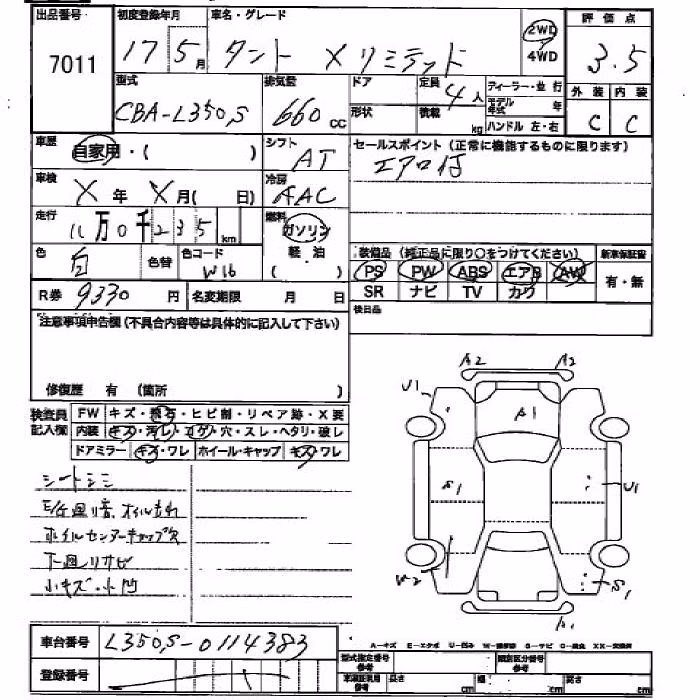 出品番号 初度登録年月 車名・グレード 評価点
7011 17 5月 タント Xリミテッド 2WD 4WD 3.5
型式 排気量 ドア 定員 ディーラー・並行 外装 内装
CBA-L350S 660cc 4人 モデル年式 年 C C
形状 積載 kg ハンドル 左・右
車歴 自家用・( ) シフト AT セールスポイント(正常に機能するものに限ります)
エアロ付
車検 X年 X月( 日) 冷房 AAC
走行 11万0千235km 燃料 ガソリン 軽油 ( )
色 白 色替 色コード W16
装備品(純正品に限り○をつけてください) 新車保証書
PS PW ABS エアB AW 有・無
SR ナビ TV カワ
R券 9330円 名変期限 月 日 後日品
注意事項申告欄(不具合内容等は具体的に記入して下さい)
修復歴 有 (箇所 )
検査員記入欄 FW キズ・飛石・ヒビ割・リペア跡・X要
内装 キズ・汚レ・コゲ・穴・スレ・ヘタリ・破レ
ドアミラー キズ・ワレ ホイール・キャップ キズ・ワレ
シートシミ
ホイルセンターキャップ欠
下廻りサビ
小キズ・小凹
A2 A2
U1 A1
A1 U1
S1
A1
車台番号 L350S-0114383
登録番号
型式指定番号 参考 類別区分番号 参考
車検証利用 参考 長さ cm 幅 cm 高さ cm